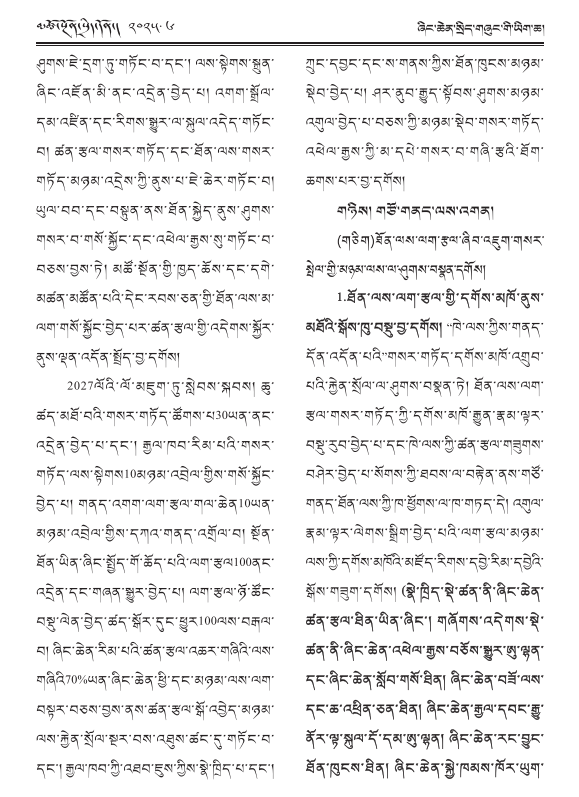 ༄༅། །མཚོ་སྔོན་སྲིད་གཞུང་གི་གསར་འགྱུར། ༢༠༢༥.༤
ཞིང་ཆེན་སྲིད་གཞུང་གི་ཡིག་ཆ།
ཤུགས་ཇེ་དྲག་ཏུ་གཏོང་བ་དང་། ལས་སྟེགས་སྨུན་
ཞིང་འཛོན་མི་ནང་འདྲེན་བྱེད་པ། འགག་སྒྲོལ་
དམ་འཛིན་དང་རིགས་སྒྱུར་ལ་སྐུལ་འདེད་གཏོང་
བ། ཚན་རྩལ་གསར་གཏོད་དང་ཐོན་ལས་གསར་
གཏོད་མཉམ་འདྲེས་ཀྱི་ནུས་པ་ཇེ་ཆེར་གཏོང་བ།
ཡུལ་བབ་དང་བསྟུན་ནས་ཐོན་སྐྱེད་ནུས་ཤུགས་
གསར་བ་གསོ་སྐྱོང་དང་འཕེལ་རྒྱས་སུ་གཏོང་བ་
བཅས་བྱས་ཏེ། མཚོ་སྔོན་གྱི་ཁྱད་ཆོས་དང་དགེ་
མཚན་མཚོན་པའི་དེང་རབས་ཅན་གྱི་ཐོན་ལས་མ་
ལག་གསོ་སྐྱོང་བྱེད་པར་ཚན་རྩལ་གྱི་འདེགས་སྐྱོར་
ནུས་ལྡན་འདོན་སྤྲོད་བྱ་དགོས།
2027ལོའི་ལོ་མཇུག་ཏུ་སླེབས་སྐབས། ཆུ་
ཚད་མཐོ་བའི་གསར་གཏོད་ཚོགས་པ30ཡན་ནང་
འདྲེན་བྱེད་པ་དང་། རྒྱལ་ཁབ་རིམ་པའི་གསར་
གཏོད་ལས་སྟེགས10མཉམ་འབྲེལ་གྱིས་གསོ་སྐྱོང་
བྱེད་པ། གནད་འགག་ལག་རྩལ་གལ་ཆེན10ཡན་
མཉམ་འབྲེལ་གྱིས་དཀའ་གནད་འགྲོལ་བ། སྔོན་
ཐོན་ཡིན་ཞིང་སྤྱོད་གོ་ཆོད་པའི་ལག་རྩལ100ནང་
འདྲེན་དང་གཞན་སྒྱུར་བྱེད་པ། ལག་རྩལ་ཉོ་ཚོང་
བསྡུ་ལེན་བྱེད་ཚད་སྒོར་དུང་ཕྱུར100ལས་བརྒལ་
བ། ཞིང་ཆེན་རིམ་པའི་ཚན་རྩལ་འཆར་གཞིའི་ལས་
གཞིའི70%ཡན་ཞིང་ཆེན་ཕྱི་དང་མཉམ་ལས་ལག་
བསྟར་བཅས་བྱས་ནས་ཚན་རྩལ་སྒོ་འབྱེད་མཉམ་
ལས་རྐྱེན་སྲོལ་སྔར་བས་འཐུས་ཚང་དུ་གཏོང་བ་
དང་། རྒྱལ་ཁབ་ཀྱི་འཐབ་ཇུས་ཀྱིས་སྣེ་ཁྲིད་པ་དང་།
ཀྲུང་དབྱང་དང་ས་གནས་ཀྱིས་ཐོན་ཁུངས་མཉམ་
སྡེབ་བྱེད་པ། ཤར་ནུབ་རྒྱུད་སྟོབས་ཤུགས་མཉམ་
འགུལ་བྱེད་པ་བཅས་ཀྱི་མཉམ་སྡེབ་གསར་གཏོད་
འཕེལ་རྒྱས་ཀྱི་མ་དཔེ་གསར་བ་གཞི་རྩའི་ཐོག་
ཆགས་པར་བྱ་དགོས།
གཉིས། གཙོ་གནད་ལས་འགན།
(གཅིག)ཐོན་ལས་ལག་རྩལ་ཞིབ་འཇུག་གསར་
སྤེལ་གྱི་མཉམ་ལས་ལ་ཤུགས་བསྣན་དགོས།
1.ཐོན་ལས་ལག་རྩལ་གྱི་དགོས་མཁོ་ནུས་
མཐོའི་སྒོས་ཁུ་བསྡུ་བྱ་དགོས། “ཁེ་ལས་ཀྱིས་གནད་
དོན་འདོན་པའི”གསར་གཏོད་དགོས་མཁོ་འགྲུབ་
པའི་རྐྱེན་སྲོལ་ལ་ཤུགས་བསྣན་ཏེ། ཐོན་ལས་ལག་
རྩལ་གསར་གཏོད་ཀྱི་དགོས་མཁོ་རྒྱུན་རྣམ་ལྟར་
བསྡུ་རུབ་བྱེད་པ་དང་ཁེ་ལས་ཀྱི་ཚན་རྩལ་གཟུགས་
བཤེར་བྱེད་པ་སོགས་ཀྱི་ཐབས་ལ་བརྟེན་ནས་གཙོ་
གནད་ཐོན་ལས་ཀྱི་ཁ་ཕྱོགས་ལ་ཁ་གཏད་དེ། འགུལ་
རྣམ་ལྟར་ལེགས་སྒྲིག་བྱེད་པའི་ལག་རྩལ་མཉམ་
ལས་ཀྱི་དགོས་མཁོའི་མཛོད་རིགས་དབྱེ་རིམ་དབྱེའི་
སྒོས་གཟུག་དགོས། (སྣེ་ཁྲིད་སྡེ་ཚན་ནི་ཞིང་ཆེན་
ཚན་རྩལ་ཐིན་ཡིན་ཞིང་། གཞོགས་འདེགས་སྡེ་
ཚན་ནི་ཞིང་ཆེན་འཕེལ་རྒྱས་བཅོས་སྒྱུར་ཨུ་ལྷན་
དང་ཞིང་ཆེན་སློབ་གསོ་ཐིན། ཞིང་ཆེན་བཟོ་ལས་
དང་ཆ་འཕྲིན་ཅན་ཐིན། ཞིང་ཆེན་རྒྱལ་དབང་རྒྱུ་
ནོར་ལྟ་སྐུལ་དོ་དམ་ཨུ་ལྷན། ཞིང་ཆེན་རང་བྱུང་
ཐོན་ཁུངས་ཐིན། ཞིང་ཆེན་སྐྱེ་ཁམས་ཁོར་ཡུག་